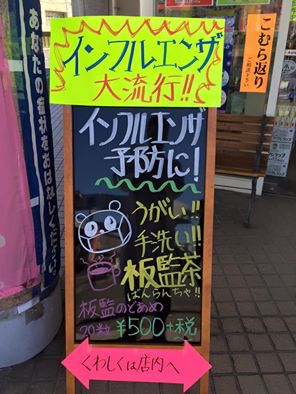 インフルエンザ
大流行!!
インフルエンザ
予防に!
うがい!!
手洗い!!
板監茶
ばんらんちゃ!!
板監のどあめ
20粒 ¥500+税
くわしくは店内へ
こむら返り
あなたの症状をおはなしください。